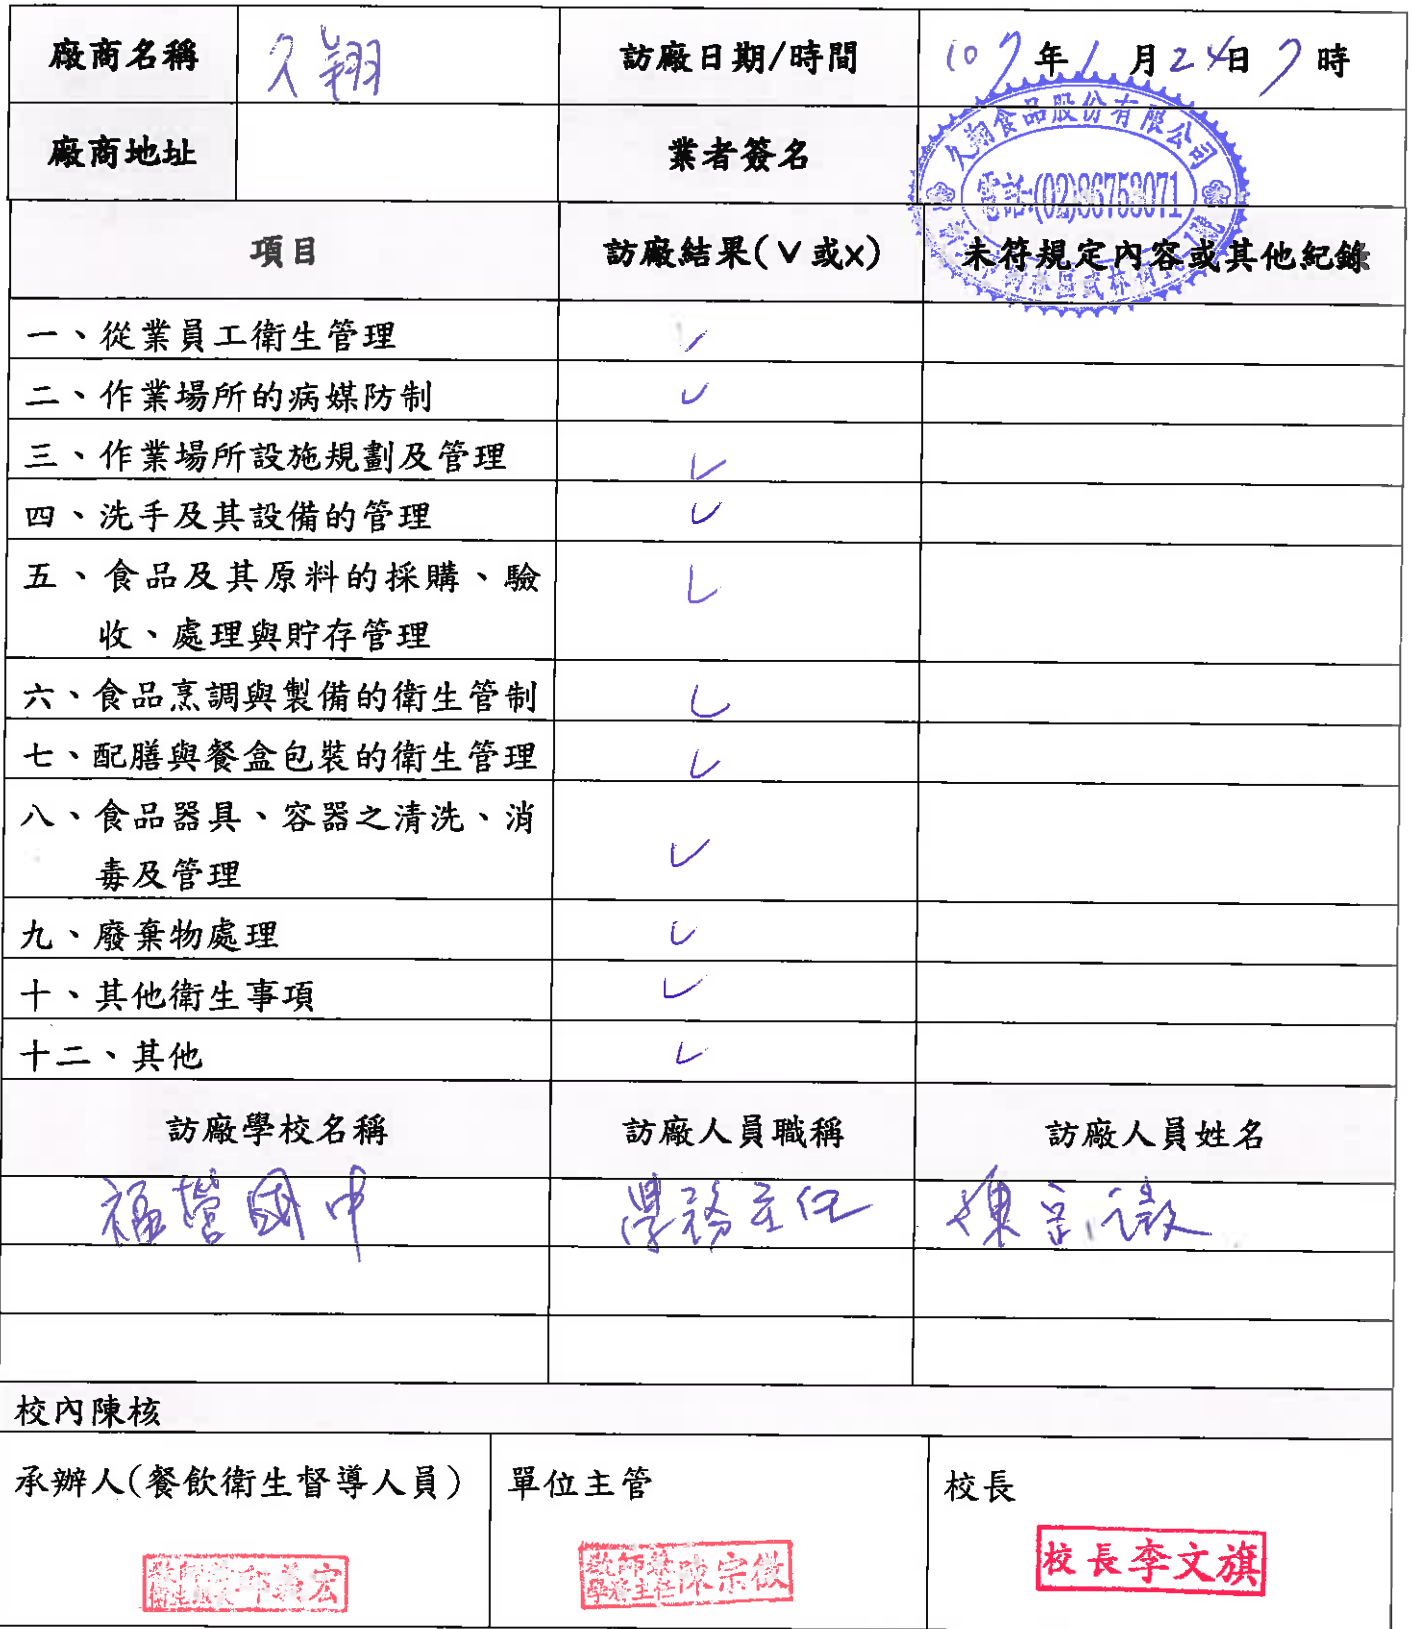 廠商名稱 久翔 訪廠日期/時間 107年1月24日7時
廠商地址 業者簽名
久翔食品股份有限公司
電話:(02)86753071
項目 訪廠結果(V或x) 未符規定內容或其他紀錄
一、從業員工衛生管理 ✓
二、作業場所的病媒防制 ✓
三、作業場所設施規劃及管理 ✓
四、洗手及其設備的管理 ✓
五、食品及其原料的採購、驗
收、處理與貯存管理 ✓
六、食品烹調與製備的衛生管制 ✓
七、配膳與餐盒包裝的衛生管理 ✓
八、食品器具、容器之清洗、消
毒及管理 ✓
九、廢棄物處理 ✓
十、其他衛生事項 ✓
十二、其他 ✓
訪廠學校名稱 訪廠人員職稱 訪廠人員姓名
福營國中 學務主任 陳宗徵
校內陳核
承辦人(餐飲衛生督導人員) 單位主管 校長
教師兼
學務主任 陳宗徵
校長李文旗